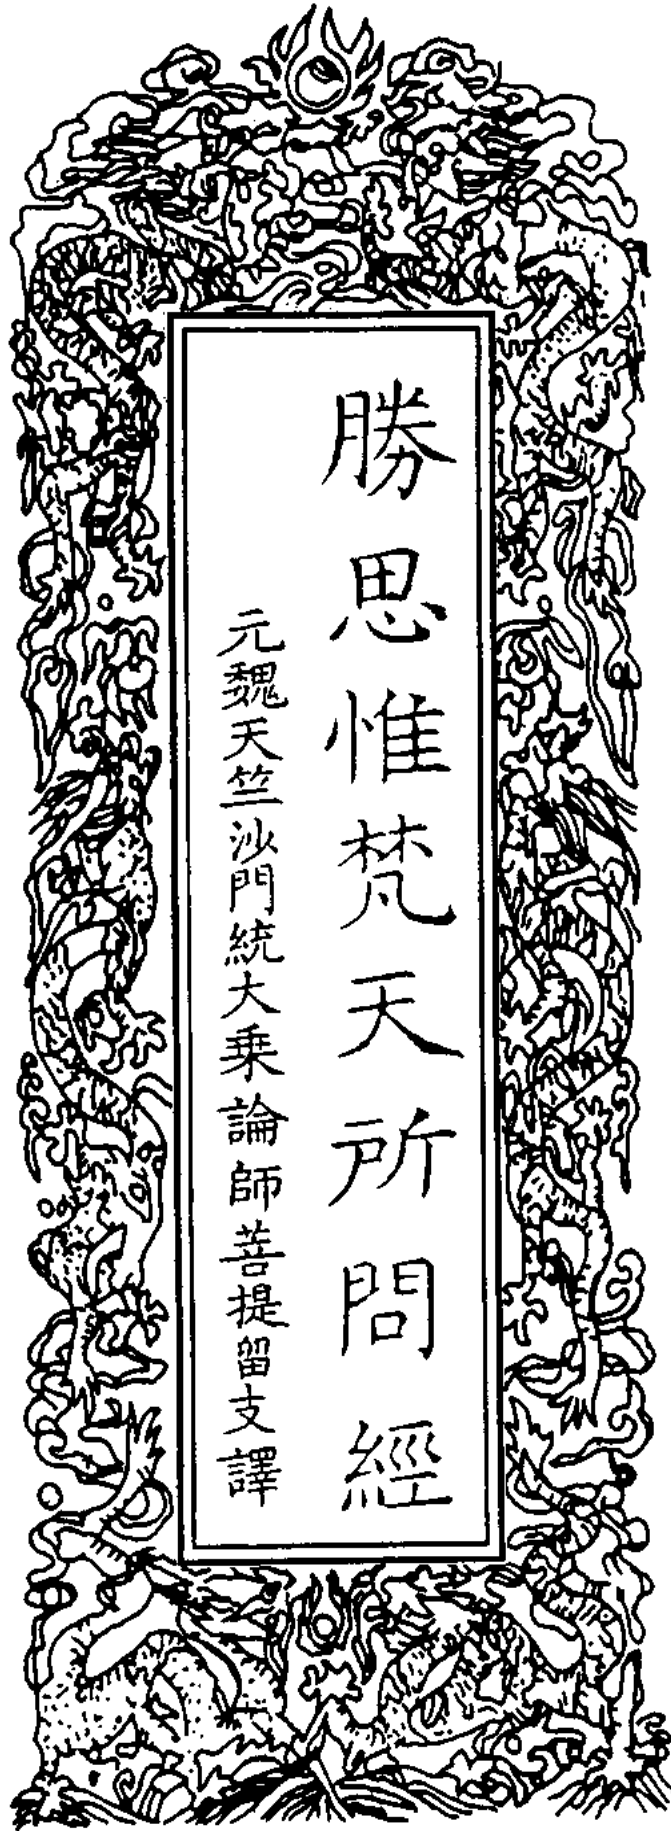 勝思惟梵天所問經
元魏天竺沙門統大乗論師菩提留支譯